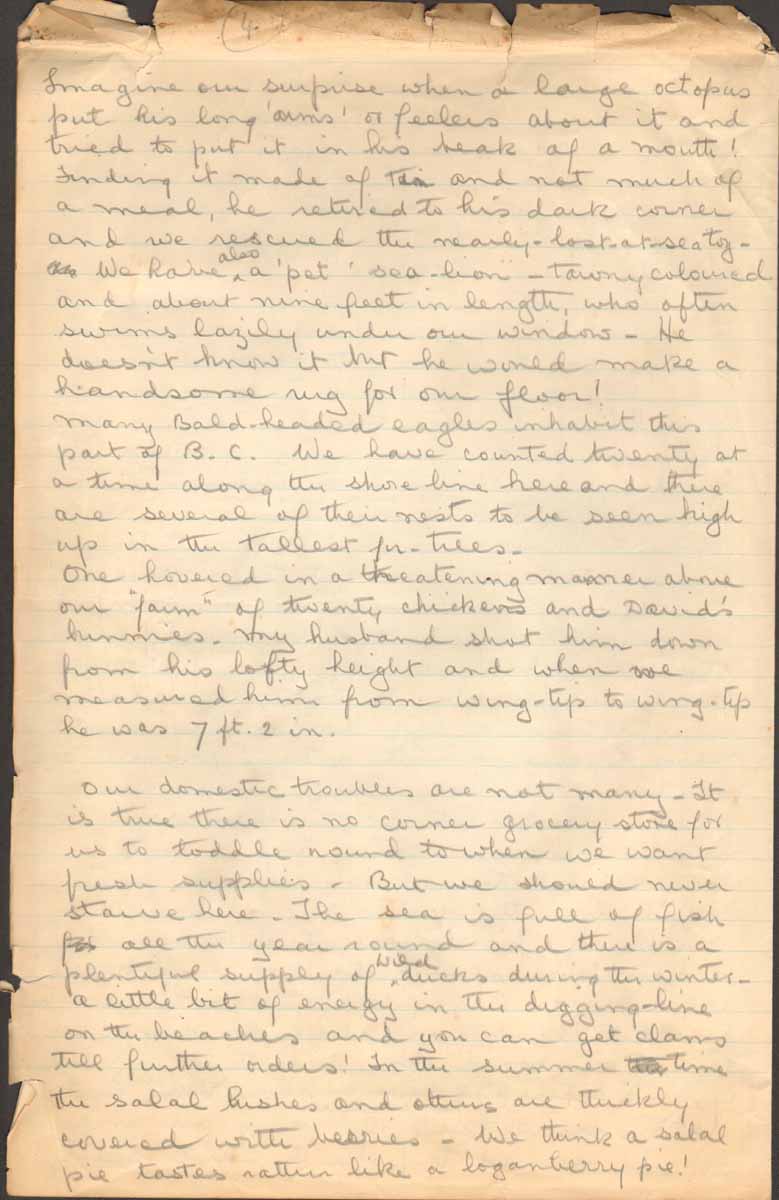 4.
Imagine our surprise when a large octopus
put his long 'arms' or feelers about it and
tried to put it in his beak of a mouth!
Finding it made of tin and not much of
a meal, he retired to his dark corner
and we rescued the nearly-lost-at-sea toy-
We have also a 'pet' sea-lion - tawny coloured
and about nine feet in length, who often
swims lazily under our window - He
doesn't know it but he would make a
handsome rug for our floor!
Many Bald-headed eagles inhabit this
part of B.C. We have counted twenty at
a time along the shore line here and there
are several of their nests to be seen high
up in the tallest fir-trees-
One hovered in a threatening manner above
our "farm" of twenty chickens and David's
bunnies. My husband shot him down
from his lofty height and when we
measured him from wing-tip to wing-tip
he was 7 ft. 2 in.
Our domestic troubles are not many - It
is true there is no corner grocery store for
us to toddle round to when we want
fresh supplies - But we should never
starve here. The sea is full of fish
all the year round and there is a
plentiful supply of wild ducks during the winter-
a little bit of energy in the digging-line
on the beaches and you can get clams
till further orders! In the summer time
the salal bushes and others are thickly
covered with berries - We think a salal
pie tastes rather like a loganberry pie!